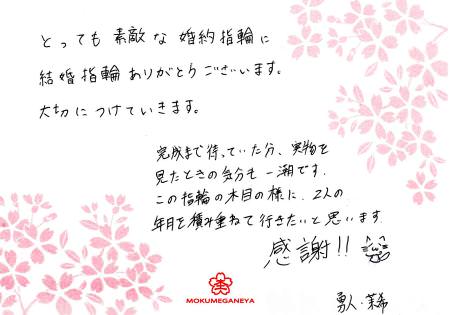 とっても素敵な婚約指輪に
結婚指輪ありがとうございます。
大切につけていきます。
完成まで待っていた分、実物を
見たときの気分も一潮です。
この指輪の木目の様に、2人の
年月を積み重ねて行きたいと思います
感謝!!
MOKUMEGANEYA